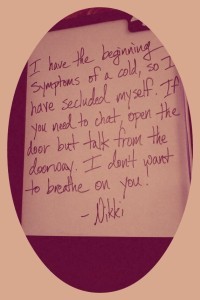 I have the beginning
symptoms of a cold, so I
have secluded myself. If
you need to chat, open the
door but talk from the
doorway. I don't want
to breathe on you.
- Nikki